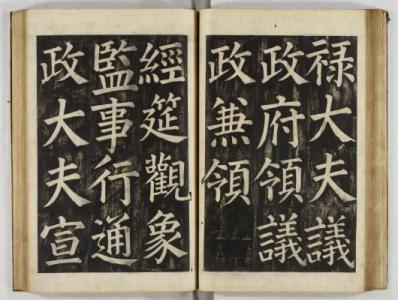 祿大夫議
政府領議
政兼領
經筵觀象
監事行通
政大夫宣